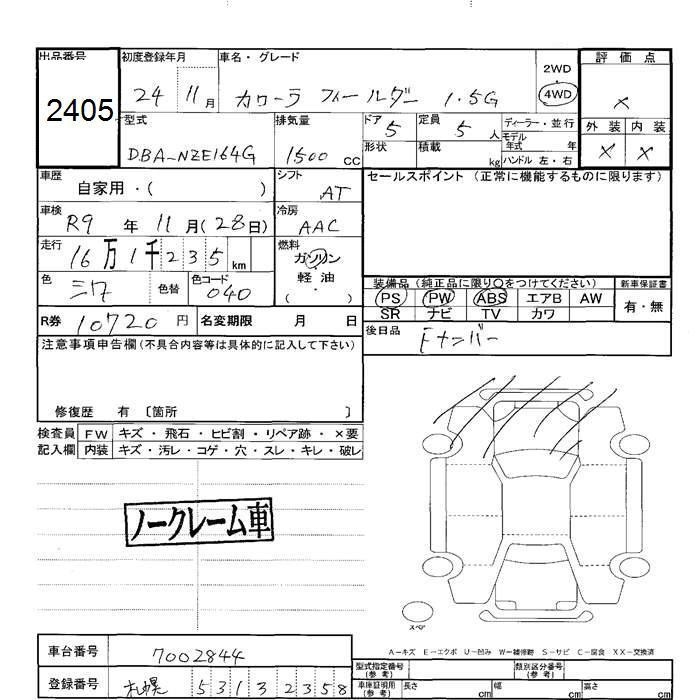 出品番号 初度登録年月 車名・グレード 評価点
2405 24 11月 カローラ フィールダー 1.5G 2WD 4WD ×
型式 排気量 ドア 定員 ディーラー・並行 外装 内装
DBA-NZE164G 1500 cc 5 5 人 モデル年式 年 × ×
形状 積載 kg ハンドル 左・右
車歴 シフト セールスポイント (正常に機能するものに限ります)
自家用・( ) AT
車検 冷房
R9 年 11 月 (28日) AAC
走行 燃料
16万1千235 km ガソリン
軽油
( ・ )
色 色替 色コード 装備品 (純正品に限り○をつけてください) 新車保証書
040 PS PW ABS エアB AW 有・無
SR ナビ TV カワ
R券 10720 円 名変期限 月 日 後日品
Fナンバー
注意事項申告欄 (不具合内容等は具体的に記入して下さい)
修復歴 有 〔箇所 〕
検査員 FW キズ・飛石・ヒビ割・リペア跡・×要
記入欄 内装 キズ・汚レ・コゲ・穴・スレ・キレ・破レ
ノークレーム車
スペア
A－キズ E－エクボ U－凹み W－補修跡 S－サビ C－腐食 XX－交換済
車台番号 7002844
型式指定番号 (参考) 類別区分番号 (参考)
登録番号 札幌 531 3 2358
車庫証明用 (参考) 長さ cm 幅 cm 高さ cm